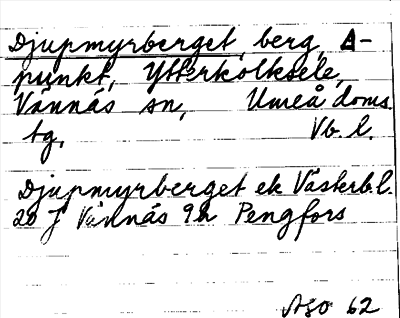 Djupmyrberget, berg, Δ-
punkt, Ytterkolksele,
Vännäs sn, Umeå doms.
tg, Vb. l.
Djupmyrberget ek Västerb.l.
20 J Vännäs 9h Pengfors
ASO 62